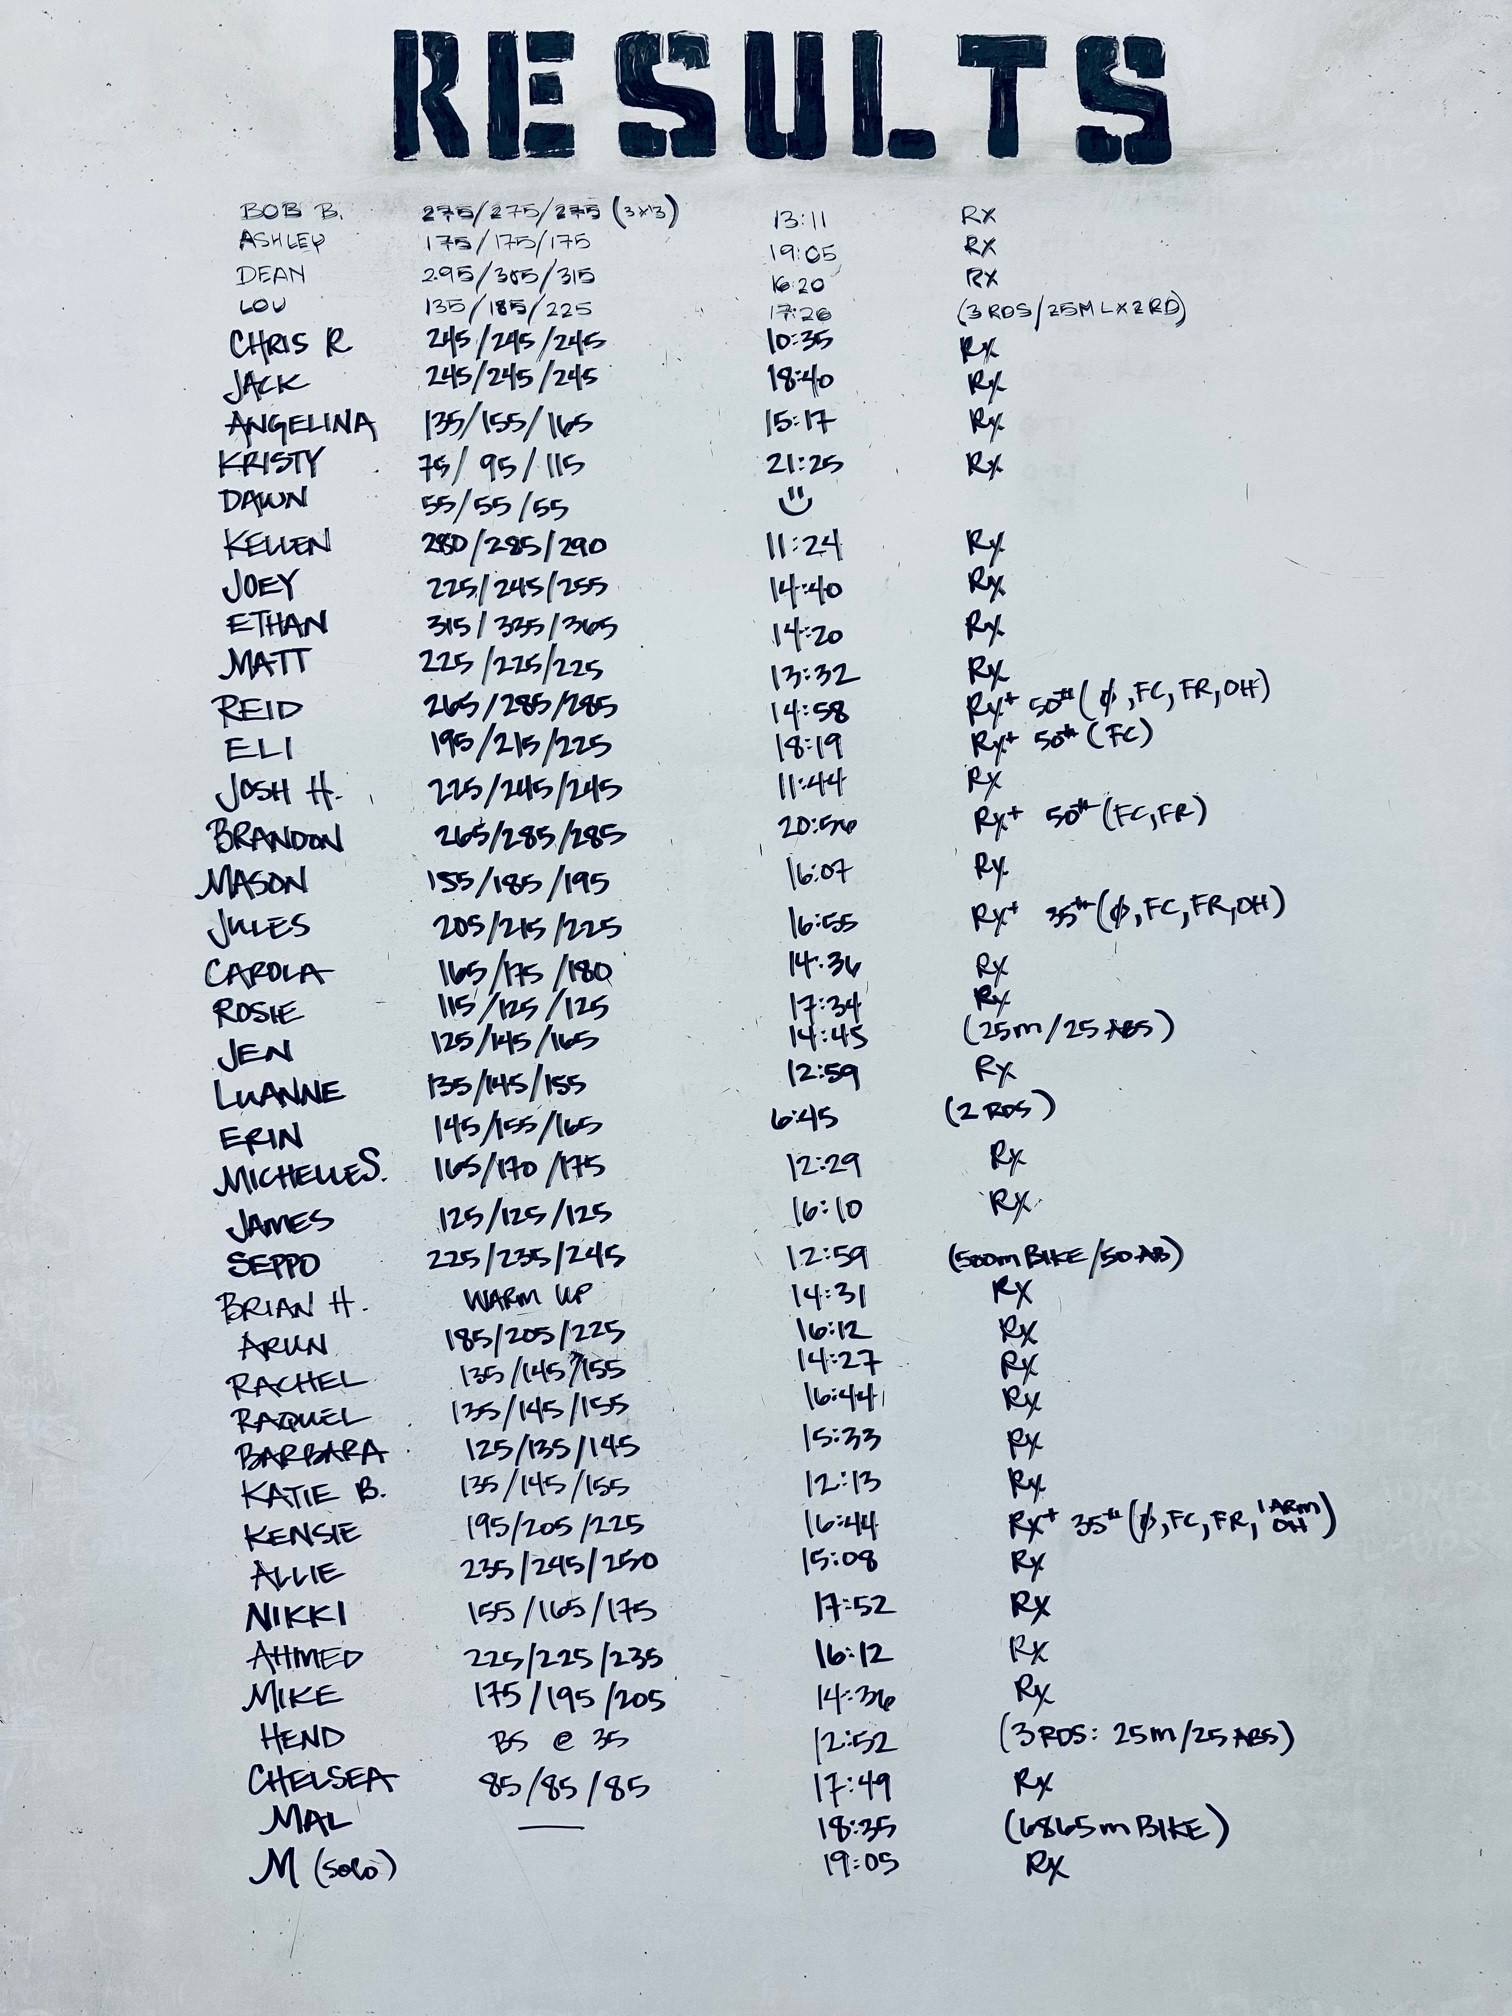 RESULTS
BOB B. 275/275/275 (3x3) 13:11 RX
ASHLEY 175/175/175 19:05 RX
DEAN 295/305/315 16:20 RX
LOU 135/185/225 17:26 (3 RDS/25M LX2RD)
CHRIS R 245/245/245 10:35 Rx
JACK 245/245/245 18:40 Rx
ANGELINA 135/155/165 15:17 Rx
KRISTY 75/95/115 21:25 Rx
DAWN 55/55/55
KELLEN 280/285/290 11:24 Rx
JOEY 225/245/255 14:40 Rx
ETHAN 315/335/365 14:20 Rx
MATT 225/225/225 13:32 Rx
REID 265/285/285 14:58 Rx+ 50# (ϕ, FC, FR, OH)
ELI 195/215/225 18:19 Rx+ 50# (FC)
JOSH H. 225/245/245 11:44 Rx
BRANDON 265/285/285 20:56 Rx+ 50# (FC, FR)
MASON 155/185/195 16:07 Rx
JULES 205/215/225 16:55 Rx+ 35# (ϕ, FC, FR, OH)
CAROLA 165/175/180 14:36 Rx
ROSIE 115/125/125 17:34 Rx
JEN 125/145/165 14:45 (25m/25 ABS)
LUANNE 135/145/155 12:59 Rx
ERIN 145/155/165 6:45 (2 RDS)
MICHELLE S. 165/170/175 12:29 Rx
JAMES 125/125/125 16:10 Rx
SEPPO 225/235/245 12:59 (500m BIKE/50 AB)
BRIAN H. WARM UP 14:31 Rx
ARUN 185/205/225 16:12 Rx
RACHEL 135/145/155 14:27 Rx
RAQUEL 135/145/155 16:44 Rx
BARBARA 125/135/145 15:33 Rx
KATIE B. 135/145/155 12:13 Rx
KENSIE 195/205/225 16:44 Rx+ 35# (ϕ, FC, FR, 1 ARM OH)
ALLIE 235/245/250 15:08 Rx
NIKKI 155/165/175 17:52 Rx
AHMED 225/225/235 16:12 Rx
MIKE 175/195/205 14:36 Rx
HEND BS @ 35 12:52 (3 RDS: 25m/25 ABS)
CHELSEA 85/85/85 17:49 Rx
MAL — 18:35 (6865m BIKE)
M (solo) 19:05 Rx